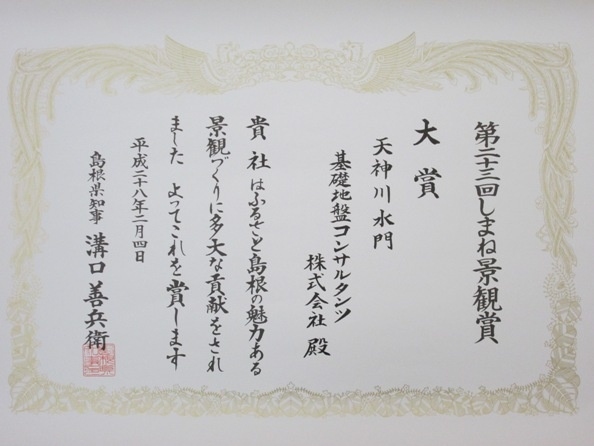 第二十三回しまね景観賞
大賞
天神川水門
基礎地盤コンサルタンツ
株式会社 殿
貴社はふるさと島根の魅力ある
景観づくりに多大な貢献をされ
ました よってこれを賞します
平成二十八年二月四日
島根県知事 溝口善兵衛